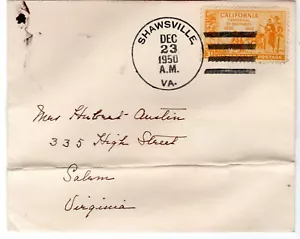 SHAWSVILLE,
DEC
23
1950
A.M.
VA.
CALIFORNIA
CENTENNIAL
OF STATEHOOD
POSTAGE
Mrs Hubert Austin
335 High Street
Salem
Virginia